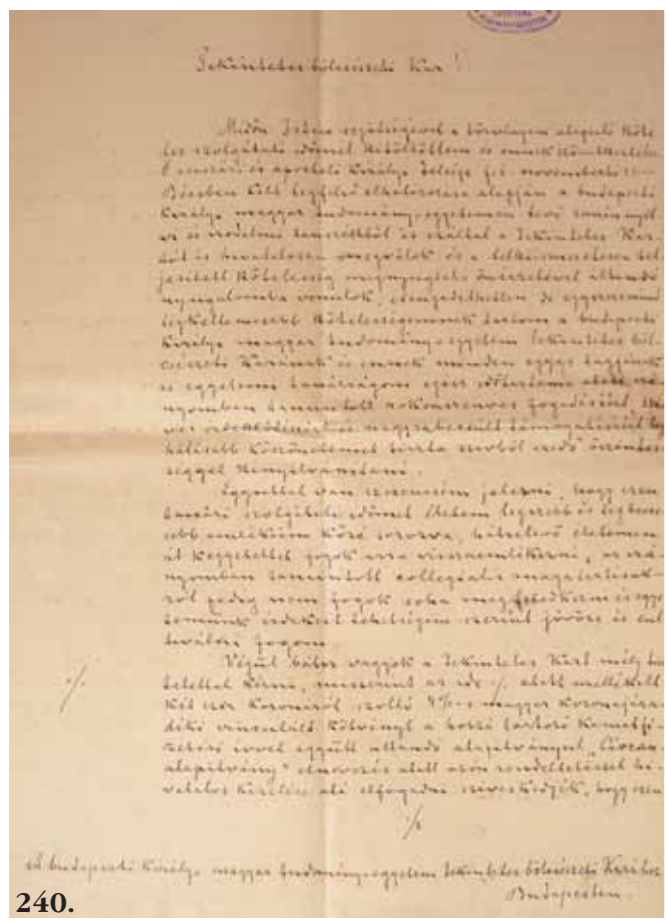 Tekintetes bölcsészeti Kar!
Midőn Isten segítségével a törvényen alapuló köte-
les szolgálati időmet kitöltöttem és ennek
császári és apostoli Királyi Felsége évi november
Bécsben kelt legfelső elhatározása alapján a budapesti
Királyi magyar tudomány-egyetemen levő románynyel-
vi és irodalmi tanszéktől és ezáltal a Tekintetes Kar-
tól is hivatalosan megválok és a lelkiismeretesen tel-
jesített kötelesség megnyugtató önérzetével állandó
nyugalomba vonulok, elengedhetetlen de egyszersmind
legkellemesebb kötelességemnek tartom a budapesti
Királyi magyar tudomány-egyetem Tekintetes böl-
csészeti Karának és ennek minden egyes tagjának
egyetemi tanárságom egész időtartama alatt irá-
nyomban tanusított rokonszenves fogadásáért, szí-
ves és nagyrabecsült támogatásáért leg-
hálásabb köszönetemet tiszta szívből eredő őszinte-
séggel kinyilvánítani.
Egyúttal van szerencsém jelezni, hogy ezen
tanári szolgálati időmet életem legszebb és legkedve-
sebb emlékeim közé sorozva, hátralevő életemen
át kegyelettel fogok arra visszaemlékezni, az irá-
nyomban tanusított collegialis magatartások-
ról pedig nem fogok soha megfeledkezni és egye-
temünk érdekeit tehetségem szerint jövőre is
fogom.
Végül bátor vagyok a Tekintetes Kart mély tisz-
telettel kérni, miszerint az ide ·/. alatt mellékelt
két ezer koronáról szóló 4%-s magyar koronajára-
déki vinculált kötvényt a hozzá tartozó kamatfi-
zetési ívvel együtt állandó alapítványul „Ciocan-
alapítvány" elnevezés alatt azon rendeltetéssel hi-
vatalos kezelése alá elfogadni szíveskedjék, hogy ezen
·/.
·/.
A budapesti Királyi magyar tudomány-egyetem Tekintetes bölcsészeti Karához
Budapesten.
240.